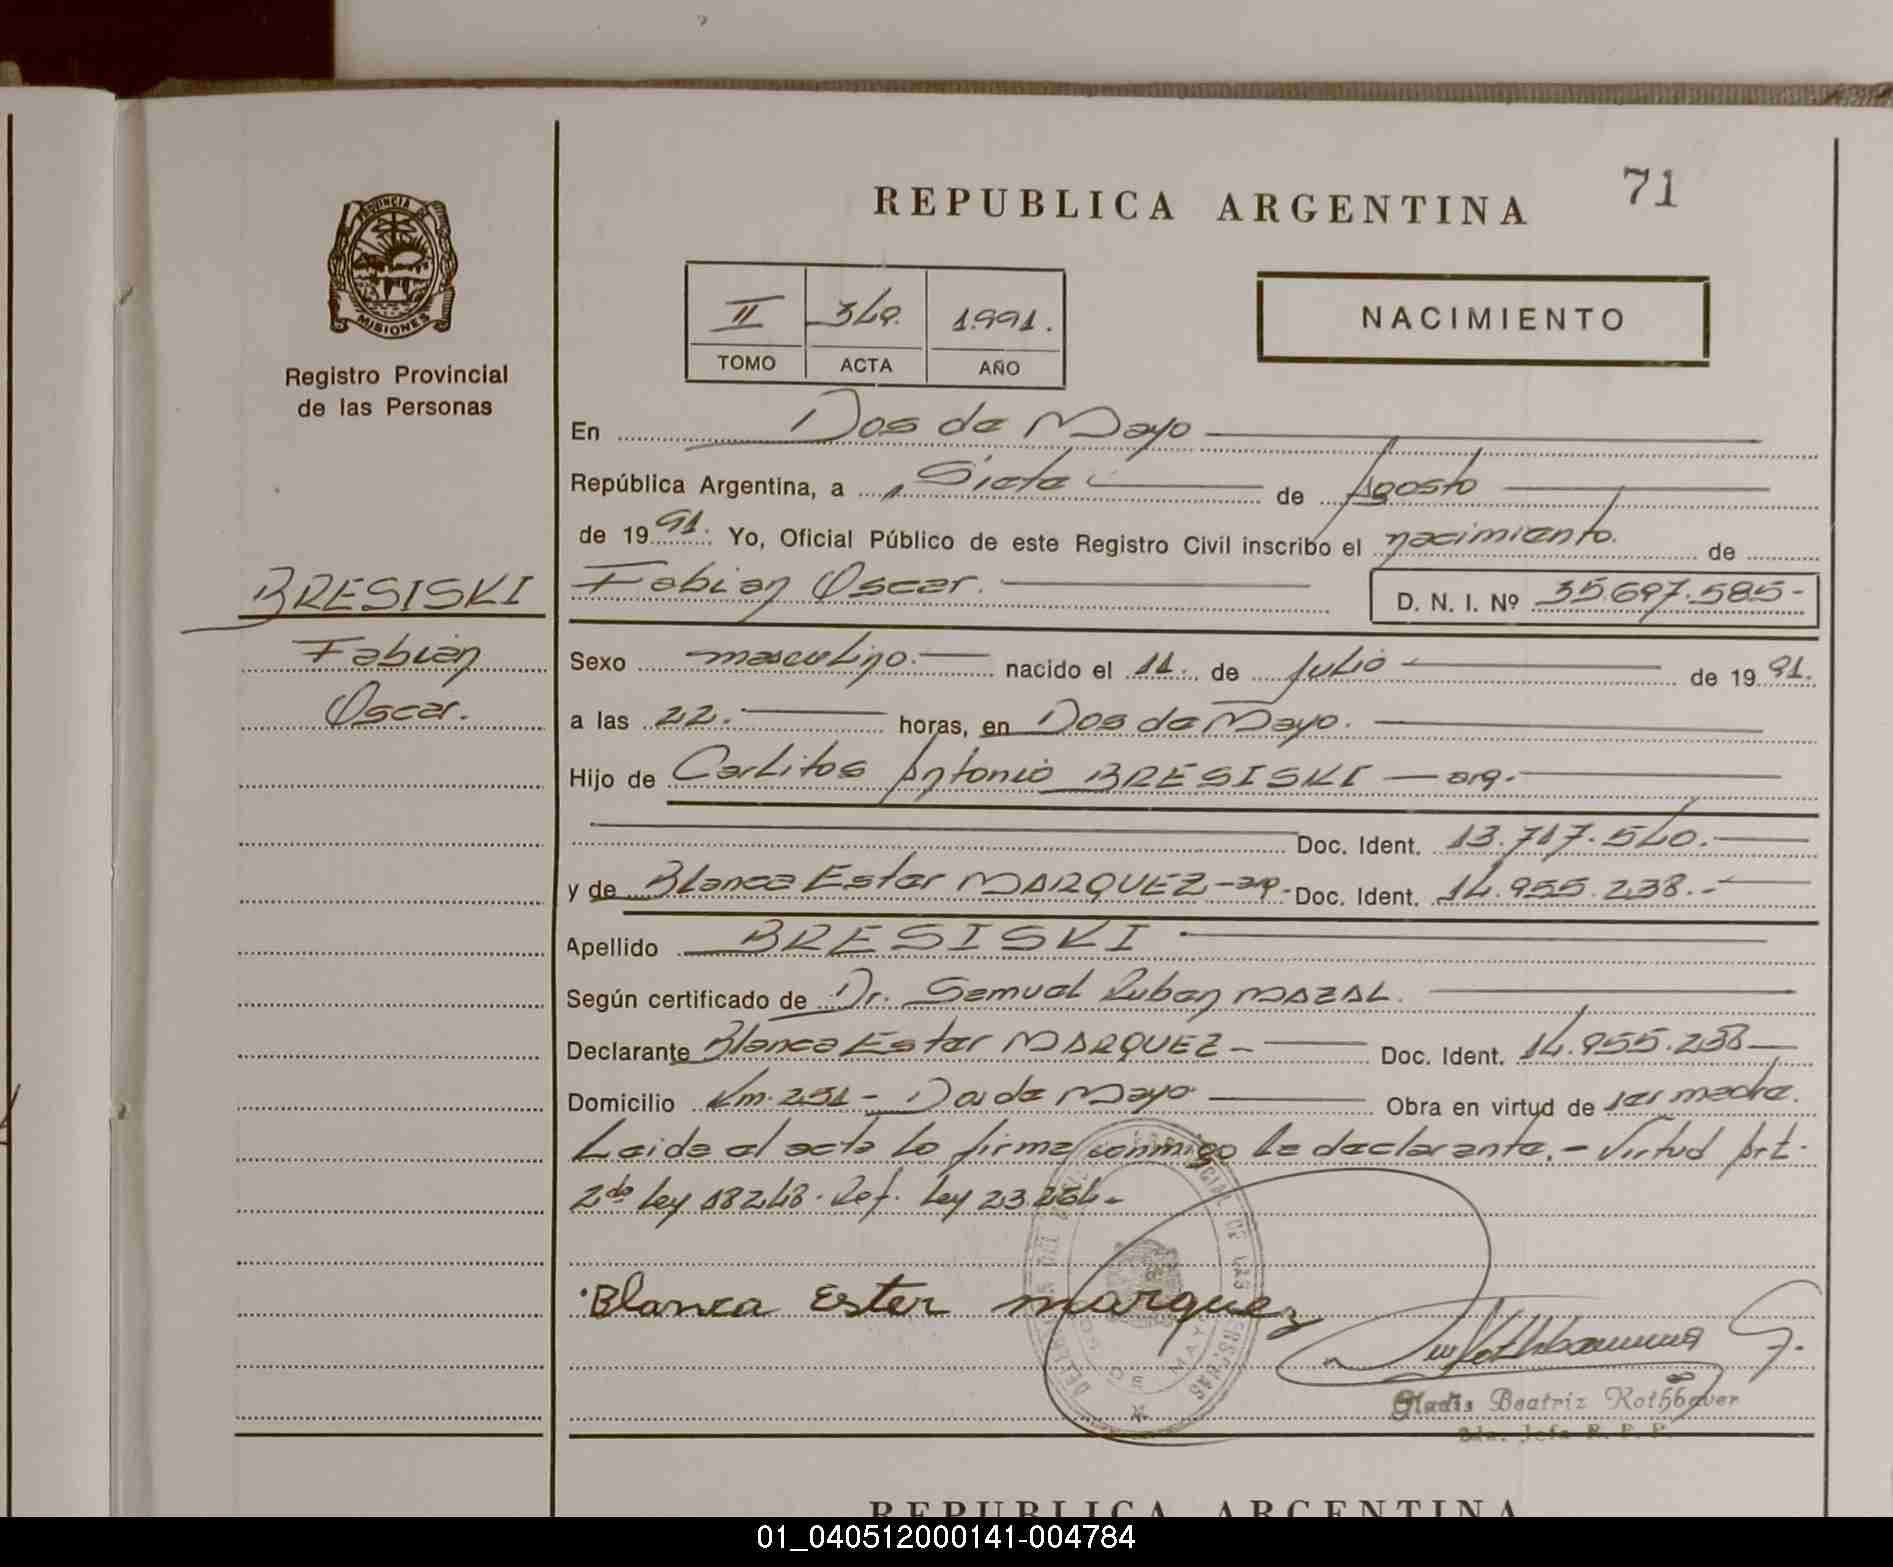 REPUBLICA ARGENTINA
71
PROVINCIA DE
MISIONES
Registro Provincial
de las Personas
II 340. 1.991.
TOMO ACTA AÑO
NACIMIENTO
En Dos de Mayo
República Argentina, a Siete de Agosto
de 1991. Yo, Oficial Público de este Registro Civil inscribo el nacimiento. de
BRESISKI
Fabian
Oscar.
Fabian Oscar. D. N. I. Nº 35.697.585-
Sexo masculino. nacido el 11. de Julio de 1991.
a las 22. horas, en Dos de Mayo.
Hijo de Carlitos Antonio BRESISKI - arg.
Doc. Ident. 13.717.540.
y de Blanca Ester MARQUEZ - arg. Doc. Ident. 14.955.238.-
Apellido BRESISKI
Según certificado de Dr. Samuel Ruben MAZAL.
Declarante Blanca Ester MARQUEZ - Doc. Ident. 14.955.238
Domicilio Km. 251 - Dos de Mayo Obra en virtud de ser madre.
Leida el acta lo firma conmigo la declarante. - Virtud Art.
2do Ley 18248. Ref. Ley 23.264-
Blanca Ester marquez
Gladis Beatriz Rothbaver
R. P. P.
REPUBLICA ARGENTINA
01_040512000141-004784